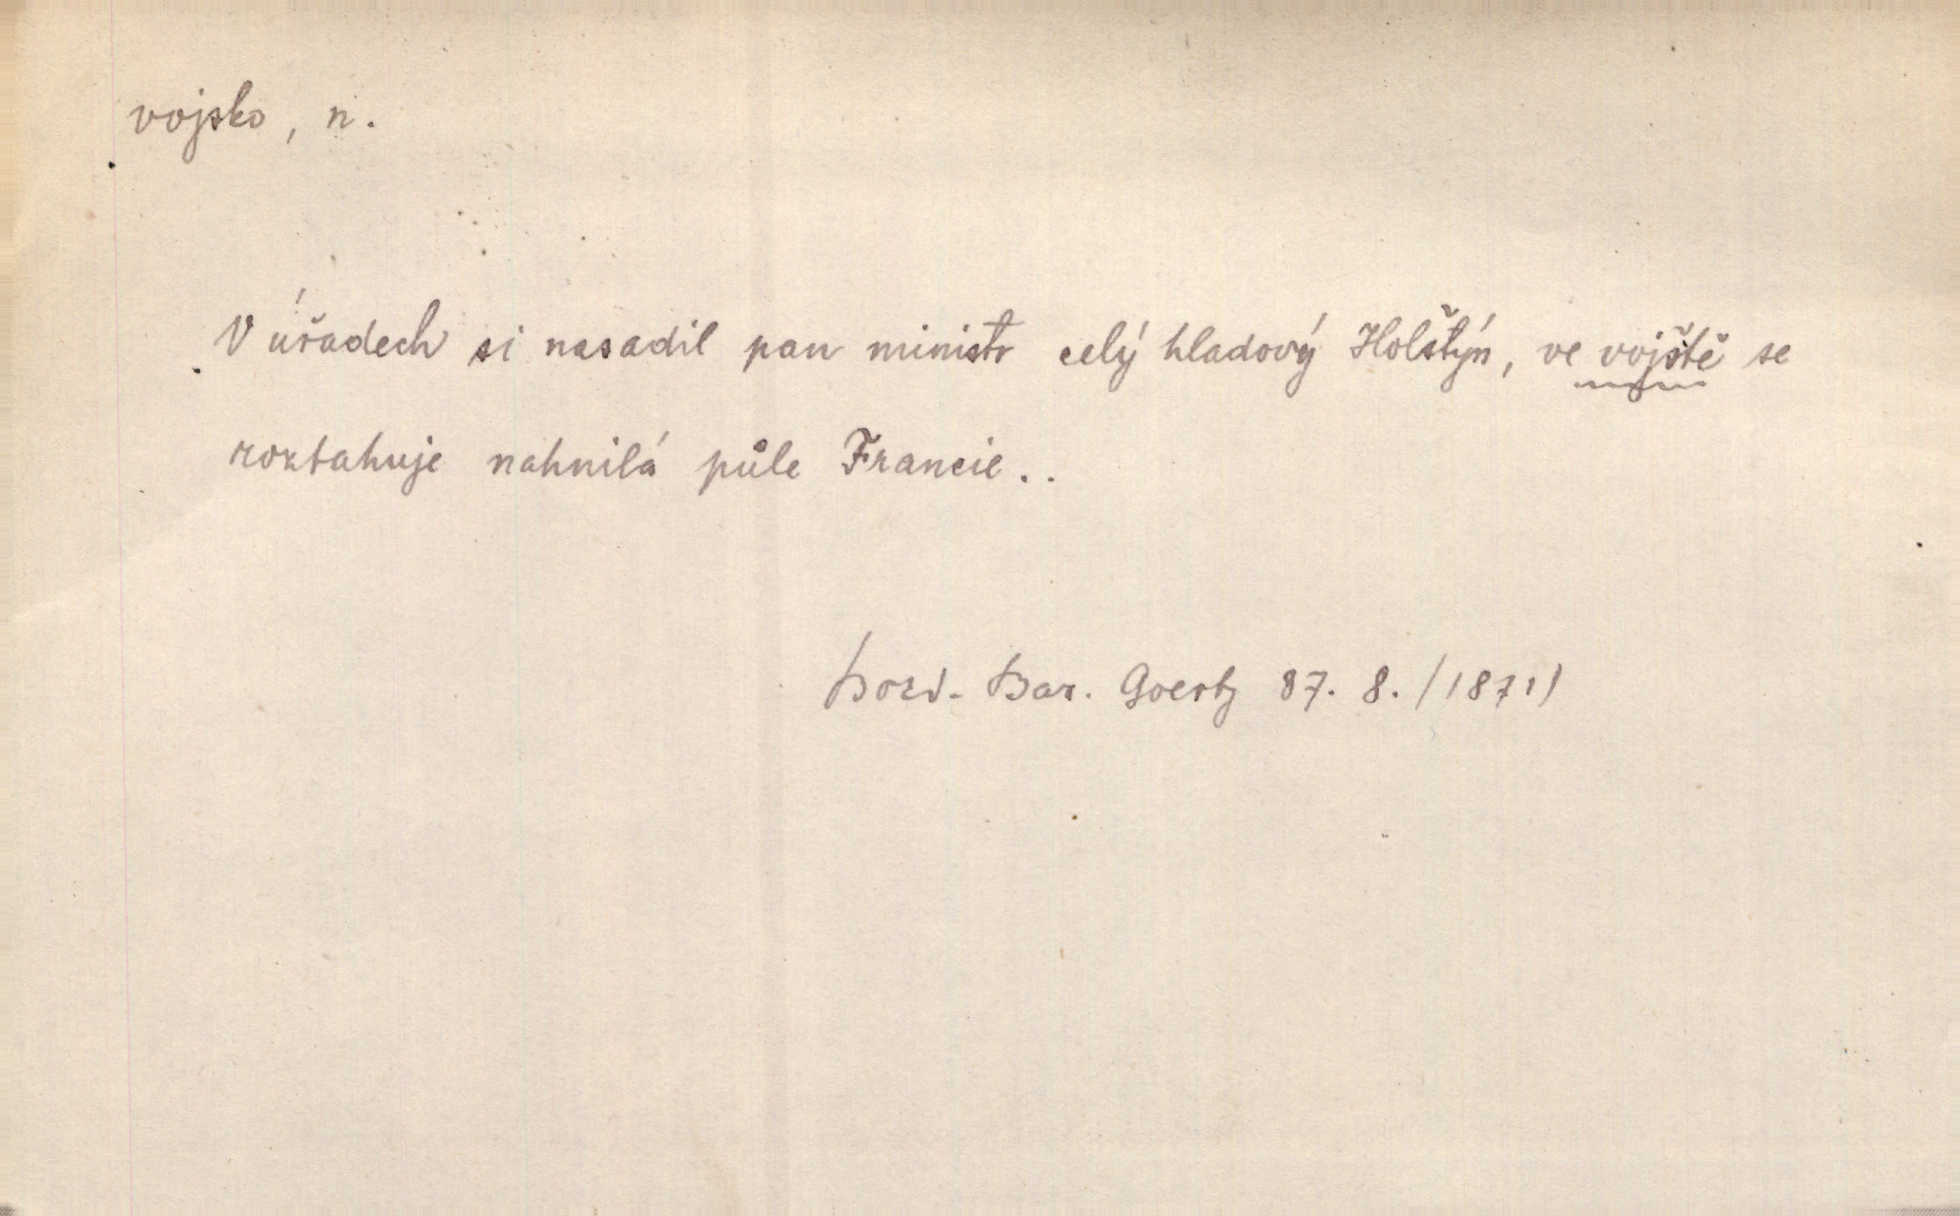 vojsko, n.
V úřadech si nasadil pan ministr celý hladový Holštýn, ve vojště se
roztahuje nahnilá půle Francie..
Bozd. Bar. Goertz 87. 8. (1871)